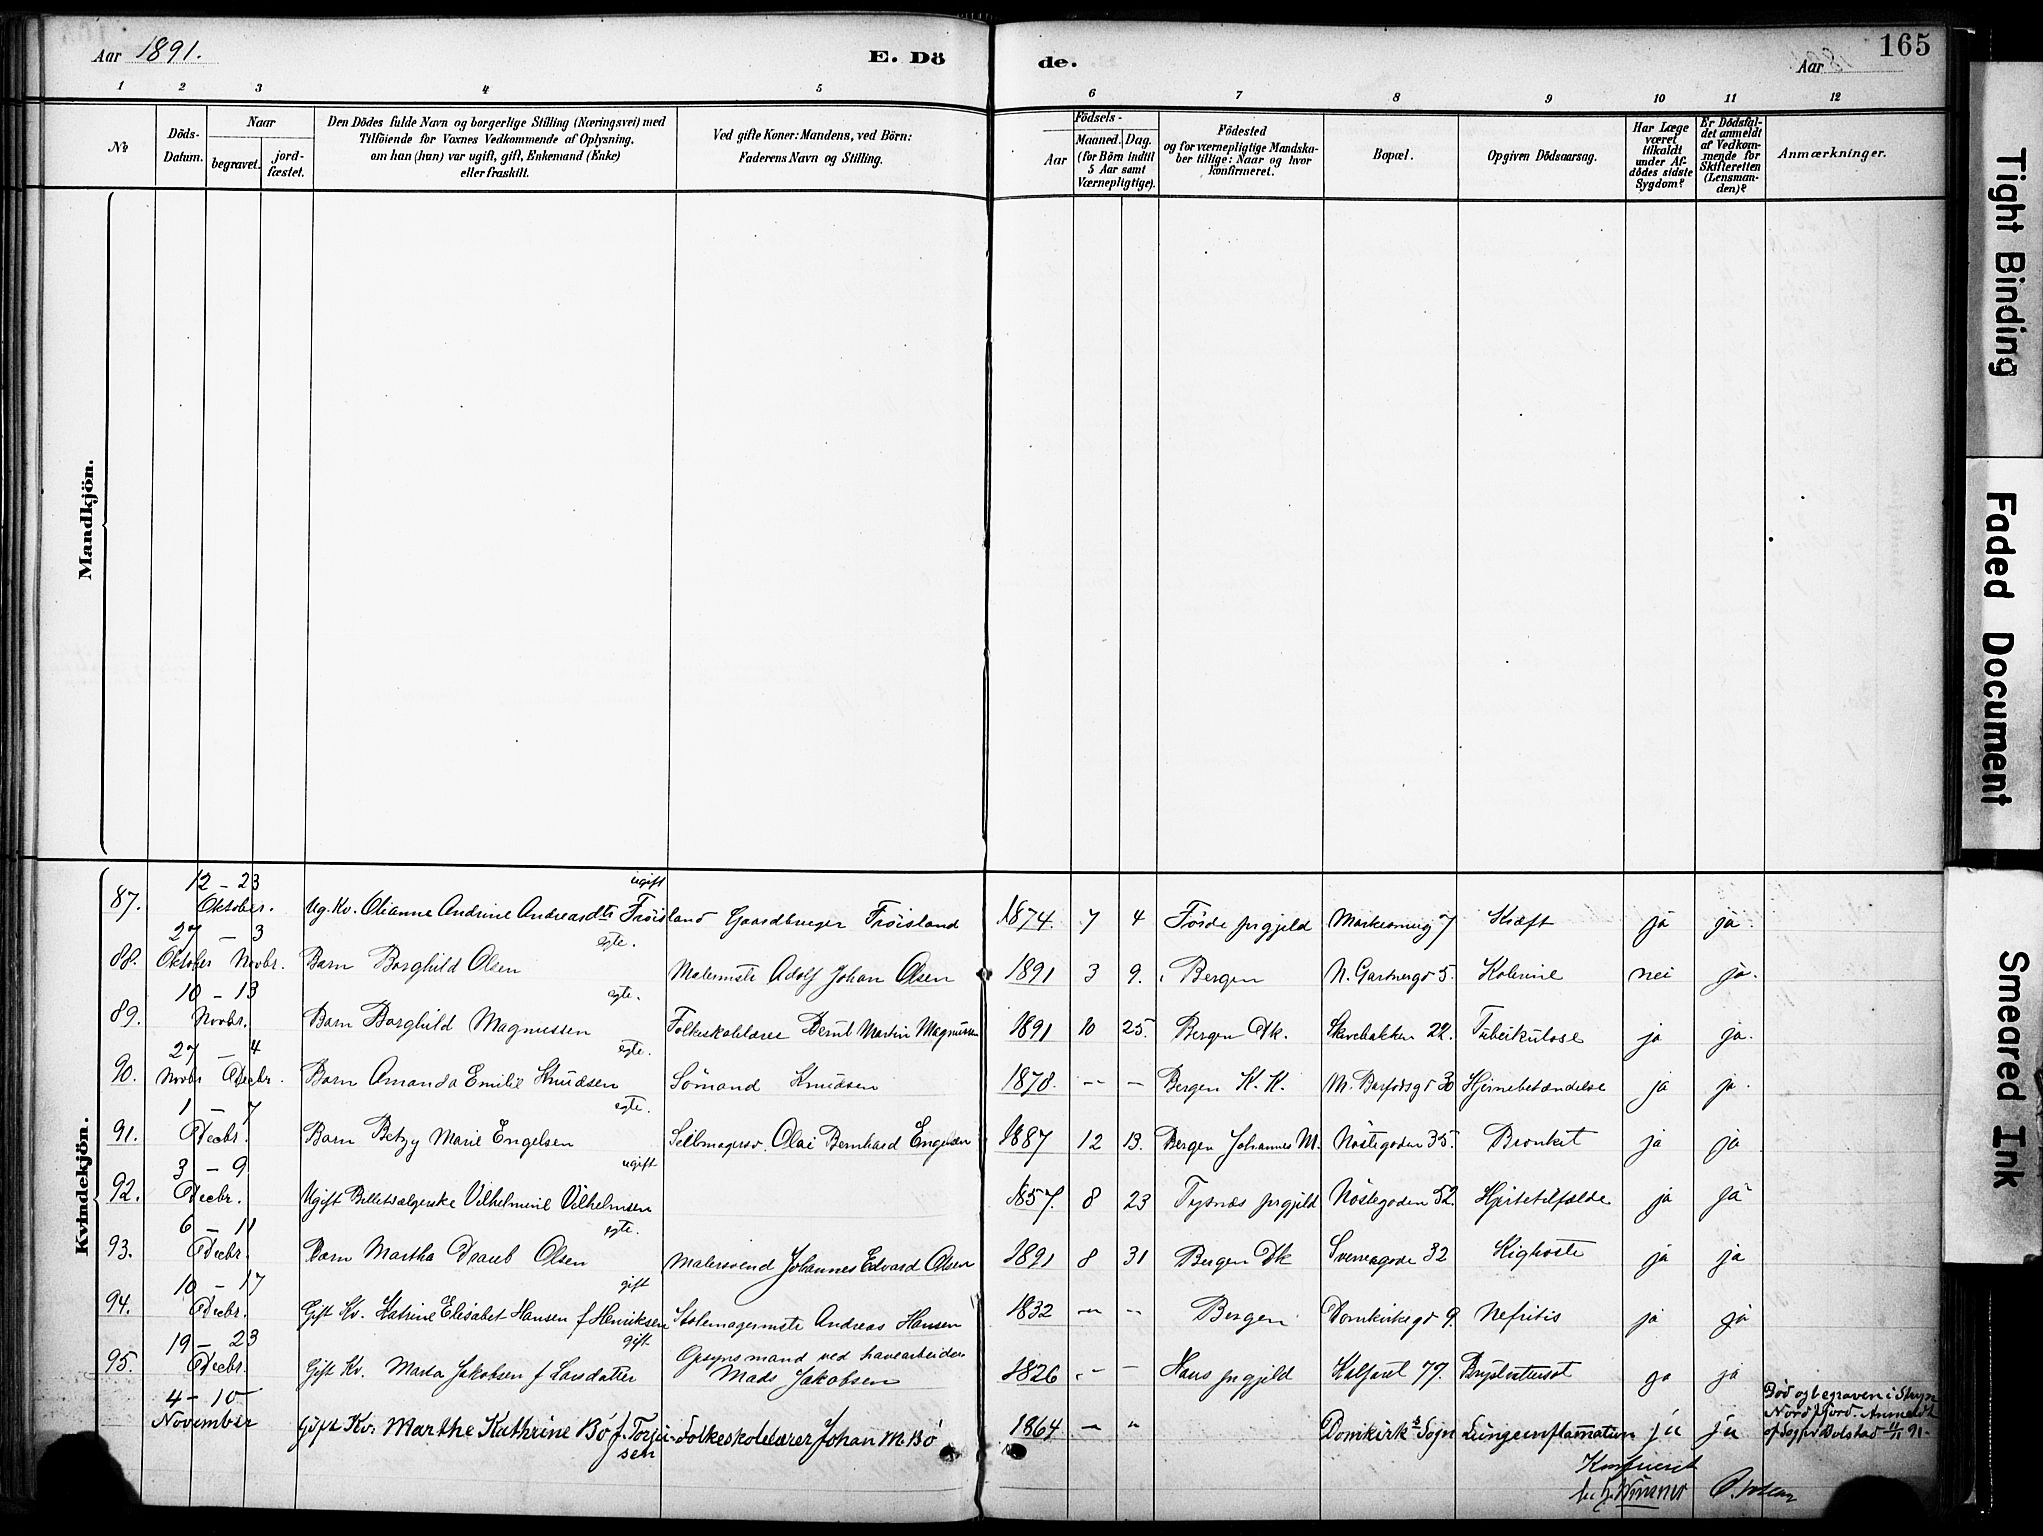 Aar 1891.
E. Dö
de.
Aar
165
1 2 3 4 5
6 7 8 9 10 11 12
No
Döds-
Datum.
Naar
begravet.
jord-
fæstet.
Den Dödes fulde Navn og borgerlige Stilling (Næringsvei) med
Tilföiende for Voxnes Vedkommende af Oplysning,
om han (hun) var ugift, gift, Enkemand (Enke)
eller fraskilt.
Ved gifte Koner: Mandens, ved Börn:
Faderens Navn og Stilling.
Födsels-
Aar
Maaned. Dag.
(for Börn indtil
5 Aar samt
Værnepligtige).
Födested
og for værnepligtige Mandska-
ber tillige: Naar og hvor
konfirmeret.
Bopæl.
Opgiven Dödsaarsag.
Har Læge
været
tilkaldt
under Af-
dödes sidste
Sygdom?
Er Dödsfal-
det anmeldt
af Vedkom-
mende for
Skifteretten
(Lensman-
den)?
Anmærkninger.
Mandkjön.
Kvindekjön.
12 – 23 ugift
87. Oktober. Ug. Kv. Olianne Andrine Andreasdtr Tröisland Gaardbruger Tröisland 1874. 7 4 Förde prgjeld Markesmug 7 Kræft ja ja.
27 – 3 egte.
88. Oktober Novbr. Barn Borghild Olsen Malermstr Adolf Johan Olsen 1891 3 9. Bergen N. Gartnergd 5. Kolerine nei ja.
10 – 13 egte.
89. Novbr. Barn Borghild Magnussen Folkeskolelærer Bernt Martin Magnussen 1891 10 25. Bergen Dk. Skivebakken 22. Tuberkulose ja ja.
27 – 4 egte.
90. Novbr Decbr. Barn Amanda Emilie Knudsen Sömand Knudsen 1878. – – Bergen K. K. M. Barfodsgd 30 Hjernebetændelse ja ja.
1 – 7 egte.
91. Decbr. Barn Betzy Marie Engelsen Seilmagersv. Olai Bernhard Engelsen 1887 12 13. Bergen Johannes M. Nöstegaden 35. Bronkit ja ja
3 – 9 ugift
92. Decbr. Ugift Billetsælgerske Vilhelmine Vilhelmsen 1857. 8 23 Tysnæs prgjeld Nöstegaden 52. Hjertetilfælde ja ja
6 – 11 egte.
93. Decbr. Barn Martha Draub Olsen Malersvend Johannes Edvard Olsen 1891 8 31 Bergen Dk Sverresgade 32 Kighoste ja ja
10 – 17 gift
94. Decbr. Gift Kv. Katrine Elisabet Hansen f Henriksen Stolemagermstr Andreas Hansen 1832 – – Bergen Domkirkegd 9. Nefritis ja ja
19 – 23 gift Opsynsmand ved havearbeider
95. Decbr. Gift Kv. Marta Jakobsen f Larsdatter Mads Jakobsen 1826 – – Haus prgjeld Kalfaret 77. ja ja
4 – 10 Död og begraven i Stryn
November Gift Kv. Marthe Kathrine Bö f. Torjusen Folkeskolelærer Johan M. Bö 1864 – " Domkirkes Sogn Lungeinflamation ja ja Nordfjord. Anmeldt
af Sogpr Bolstad 11/11 91.
Konfereret
Tight Binding
Faded Document
Smeared Ink